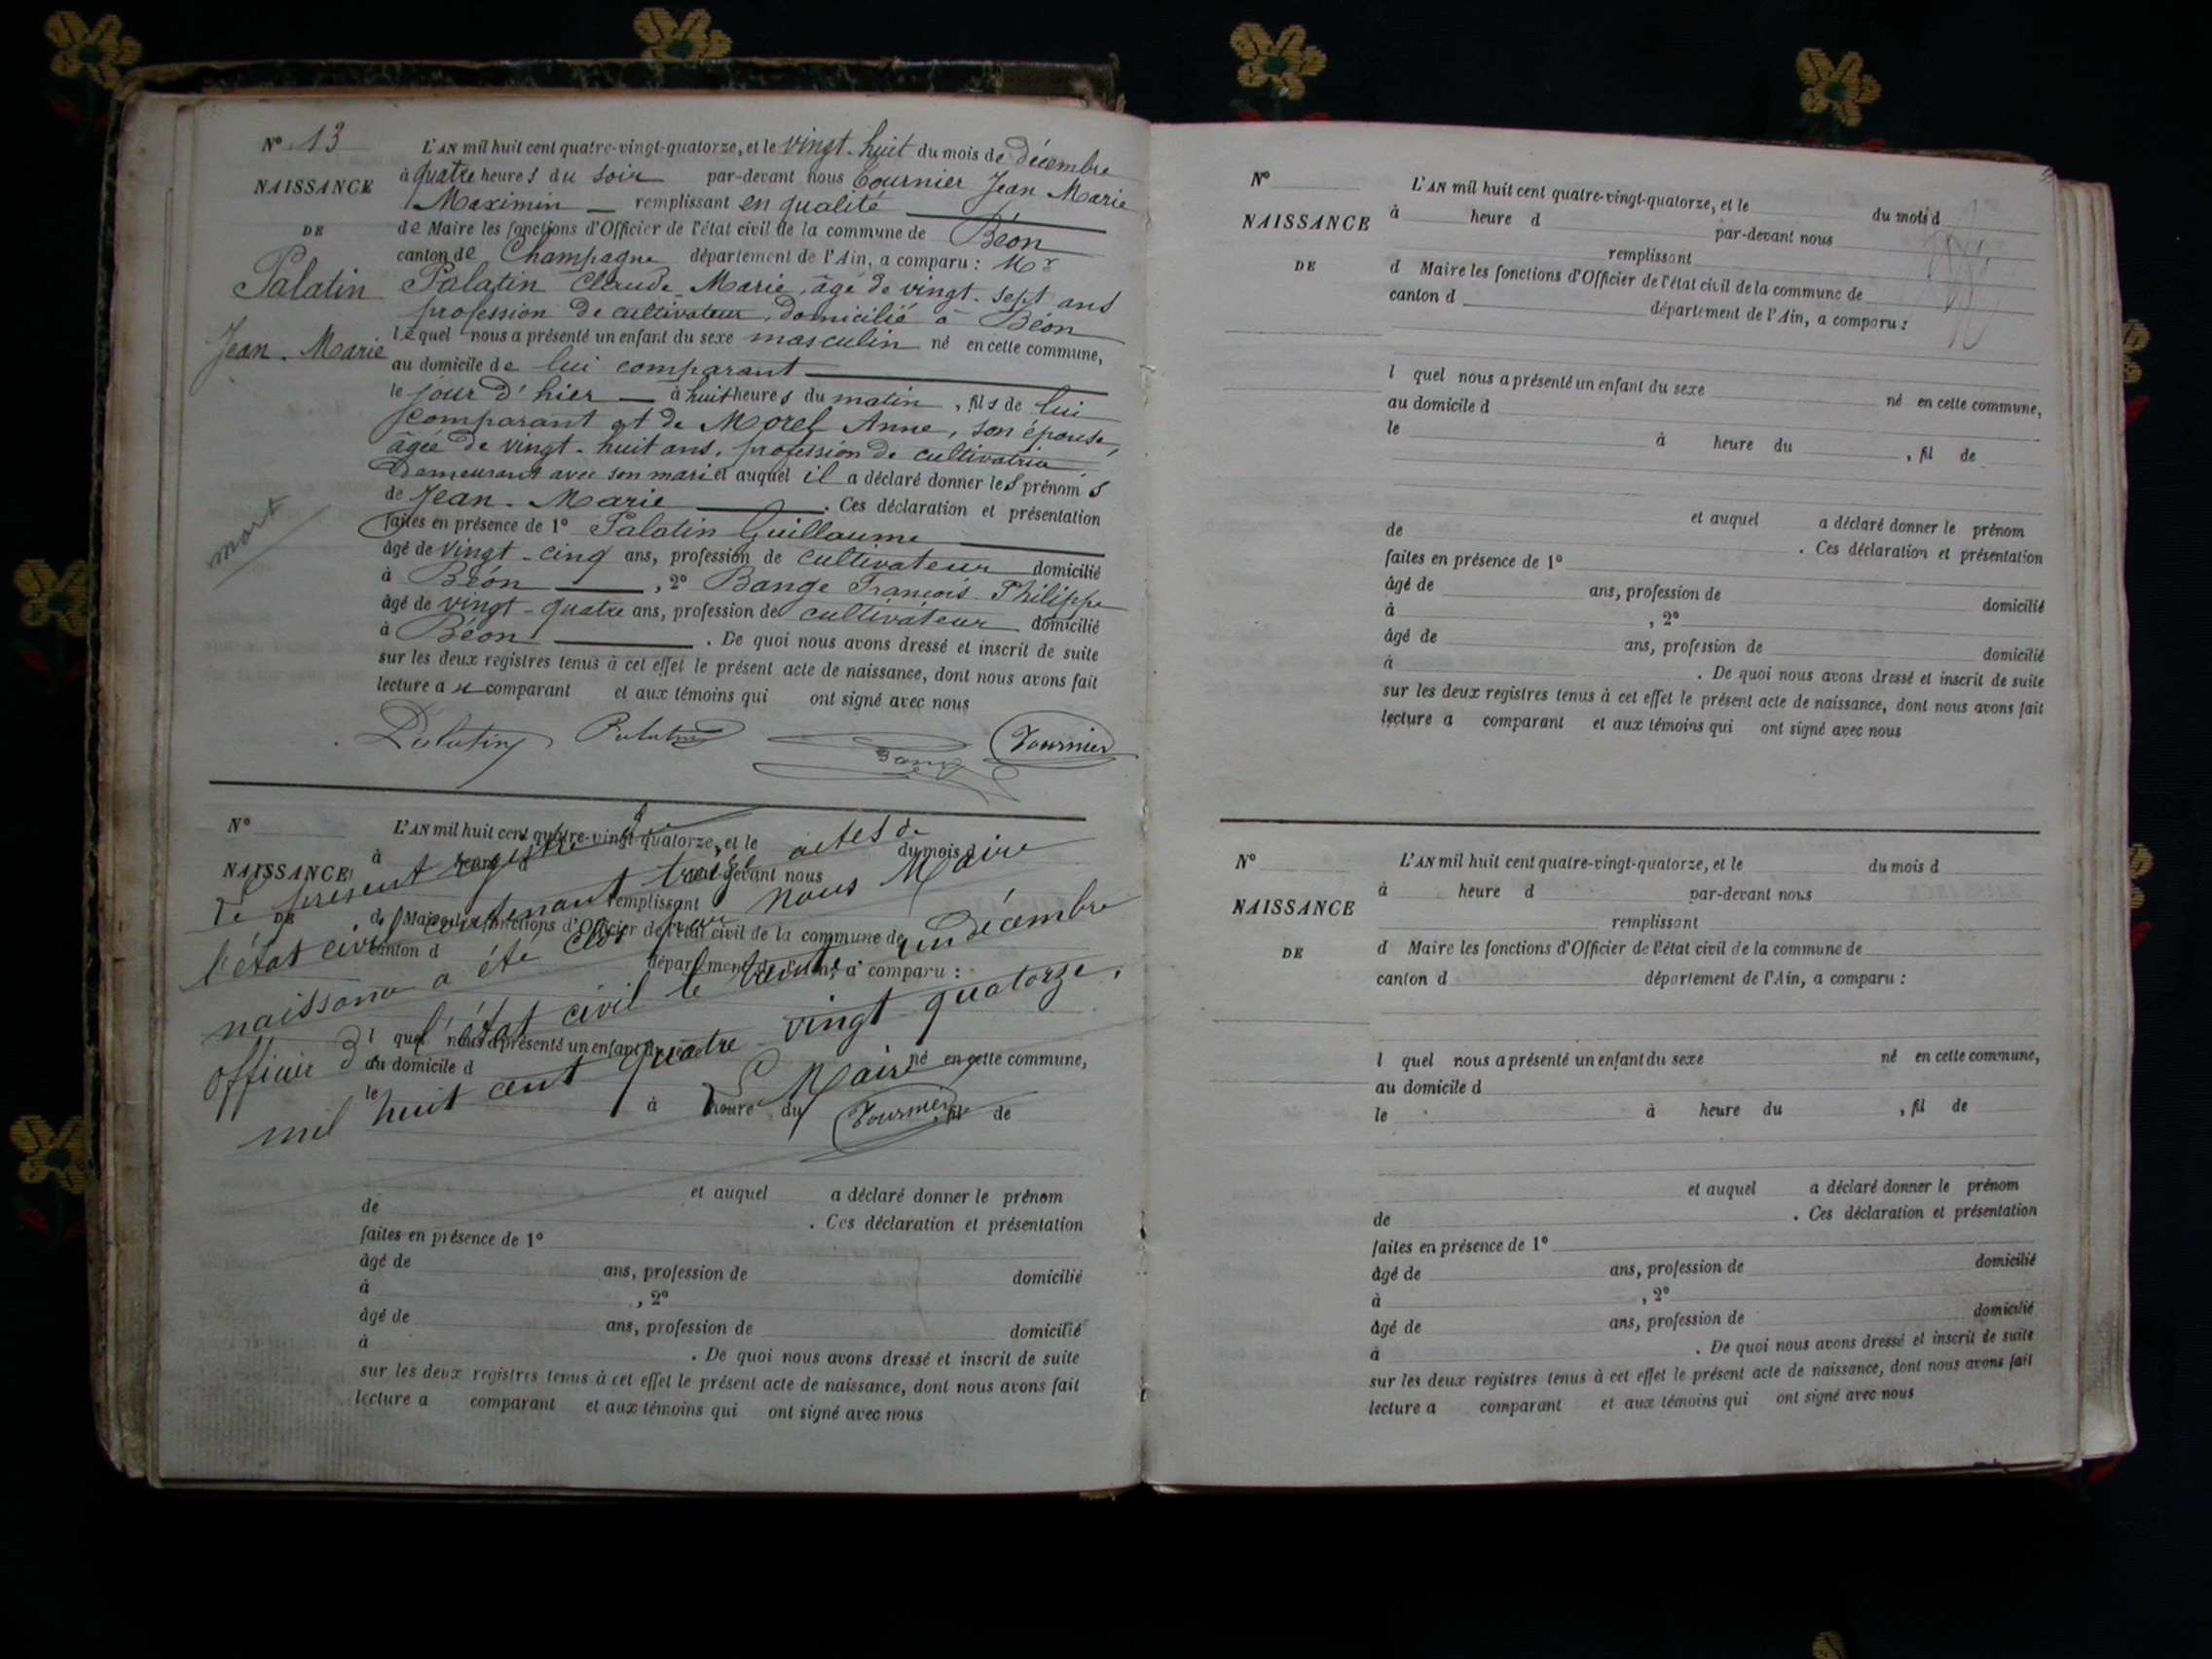 N° 13
NAISSANCE
DE
Palatin
Jean-Marie
mort
L'AN mil huit cent quatre-vingt-quatorze, et le vingt-huit du mois de décembre
à quatre heures du soir par-devant nous Tournier Jean Marie
Maximin — remplissant en qualité
de Maire les fonctions d'Officier de l'état civil de la commune de Béon
canton de Champagne département de l'Ain, a comparu : Mr
Palatin Claude-Marie, âgé de vingt-sept ans
profession de cultivateur, domicilié à Béon
lequel nous a présenté un enfant du sexe masculin né en cette commune,
au domicile de lui comparant
le jour d'hier — à huit heures du matin, fils de lui
comparant et de Morel Anne, son épouse,
âgée de vingt-huit ans, profession de cultivatrice
Demeurant avec son mari et auquel il a déclaré donner les prénoms
de Jean-Marie . Ces déclaration et présentation
faites en présence de 1° Palatin Guillaume
âgé de vingt-cinq ans, profession de cultivateur domicilié
à Béon , 2° Bange François-Philippe
âgé de vingt-quatre ans, profession de cultivateur domicilié
à Béon . De quoi nous avons dressé et inscrit de suite
sur les deux registres tenus à cet effet le présent acte de naissance, dont nous avons fait
lecture au comparant et aux témoins qui ont signé avec nous
Palatin Palatin Bange Tournier
N°
NAISSANCE
DE
L'AN mil huit cent quatre-vingt-quatorze, et le du mois d
à heure d par-devant nous
remplissant
d Maire les fonctions d'Officier de l'état civil de la commune de
canton d département de l'Ain, a comparu :
l quel nous a présenté un enfant du sexe né en cette commune,
au domicile d
le à heure du , fil de
Le présent registre d
l'état civil contenant treize actes de
naissance a été clos par nous Maire
officier de l'état civil le trente un décembre
mil huit cent quatre-vingt quatorze.
Le Maire
Tournier
et auquel a déclaré donner le prénom
de . Ces déclaration et présentation
faites en présence de 1°
âgé de ans, profession de domicilié
à , 2°
âgé de ans, profession de domicilié
à . De quoi nous avons dressé et inscrit de suite
sur les deux registres tenus à cet effet le présent acte de naissance, dont nous avons fait
lecture a comparant et aux témoins qui ont signé avec nous
N°
NAISSANCE
DE
L'AN mil huit cent quatre-vingt-quatorze, et le du mois d
à heure d par-devant nous
remplissant
d Maire les fonctions d'Officier de l'état civil de la commune de
canton d département de l'Ain, a comparu :
l quel nous a présenté un enfant du sexe né en cette commune,
au domicile d
le à heure du , fil de
et auquel a déclaré donner le prénom
de . Ces déclaration et présentation
faites en présence de 1°
âgé de ans, profession de domicilié
à , 2°
âgé de ans, profession de domicilié
à . De quoi nous avons dressé et inscrit de suite
sur les deux registres tenus à cet effet le présent acte de naissance, dont nous avons fait
lecture a comparant et aux témoins qui ont signé avec nous
N°
NAISSANCE
DE
L'AN mil huit cent quatre-vingt-quatorze, et le du mois d
à heure d par-devant nous
remplissant
d Maire les fonctions d'Officier de l'état civil de la commune de
canton d département de l'Ain, a comparu :
l quel nous a présenté un enfant du sexe né en cette commune,
au domicile d
le à heure du , fil de
et auquel a déclaré donner le prénom
de . Ces déclaration et présentation
faites en présence de 1°
âgé de ans, profession de domicilié
à , 2°
âgé de ans, profession de domicilié
à . De quoi nous avons dressé et inscrit de suite
sur les deux registres tenus à cet effet le présent acte de naissance, dont nous avons fait
lecture a comparant et aux témoins qui ont signé avec nous